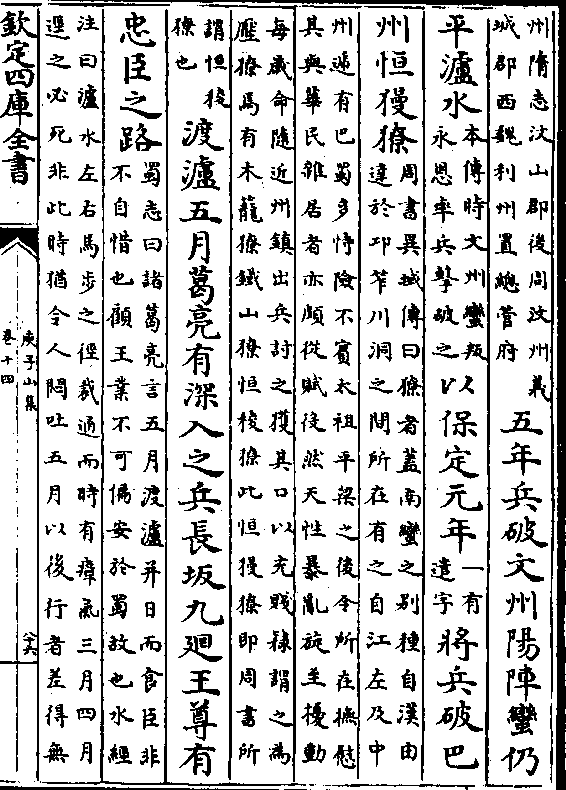 州隋志汶山郡後周汶州義
城郡西魏利州置總管府
五年兵破文州陽陣蠻仍
平瀘水
本傳時文州蠻叛
永恩率兵擊破之
以保定元年
一有
遣字
將兵破巴
州恒獌獠
周書異域傳曰獠者蓋南蠻之别種自漢由
達於邛笮川洞之間所在有之自江左及中
州遞有巴蜀多恃險不賓太祖平梁之後令所在撫慰
其與華民雜居者亦頗從賦役然天性暴亂旋至擾動
每歲命隨近州鎮出兵討之獲其口以充賤隸謂之為
壓獠焉有木籠獠鐵山獠恒稜獠此恒獌獠即周書所
謂恒稜
獠也
渡瀘五月葛亮有深入之兵長坂九迴王尊有
忠臣之路
蜀志曰諸葛亮言五月渡瀘并日而食臣非
不自惜也顧王業不可偏安於蜀故也水經
注曰瀘水左右馬步之徑裁通而時有瘴氣三月四月
逕之必死非此時猶令人悶吐五月以後行者差得無
欽定四庫全書
庚子山集
卷十四